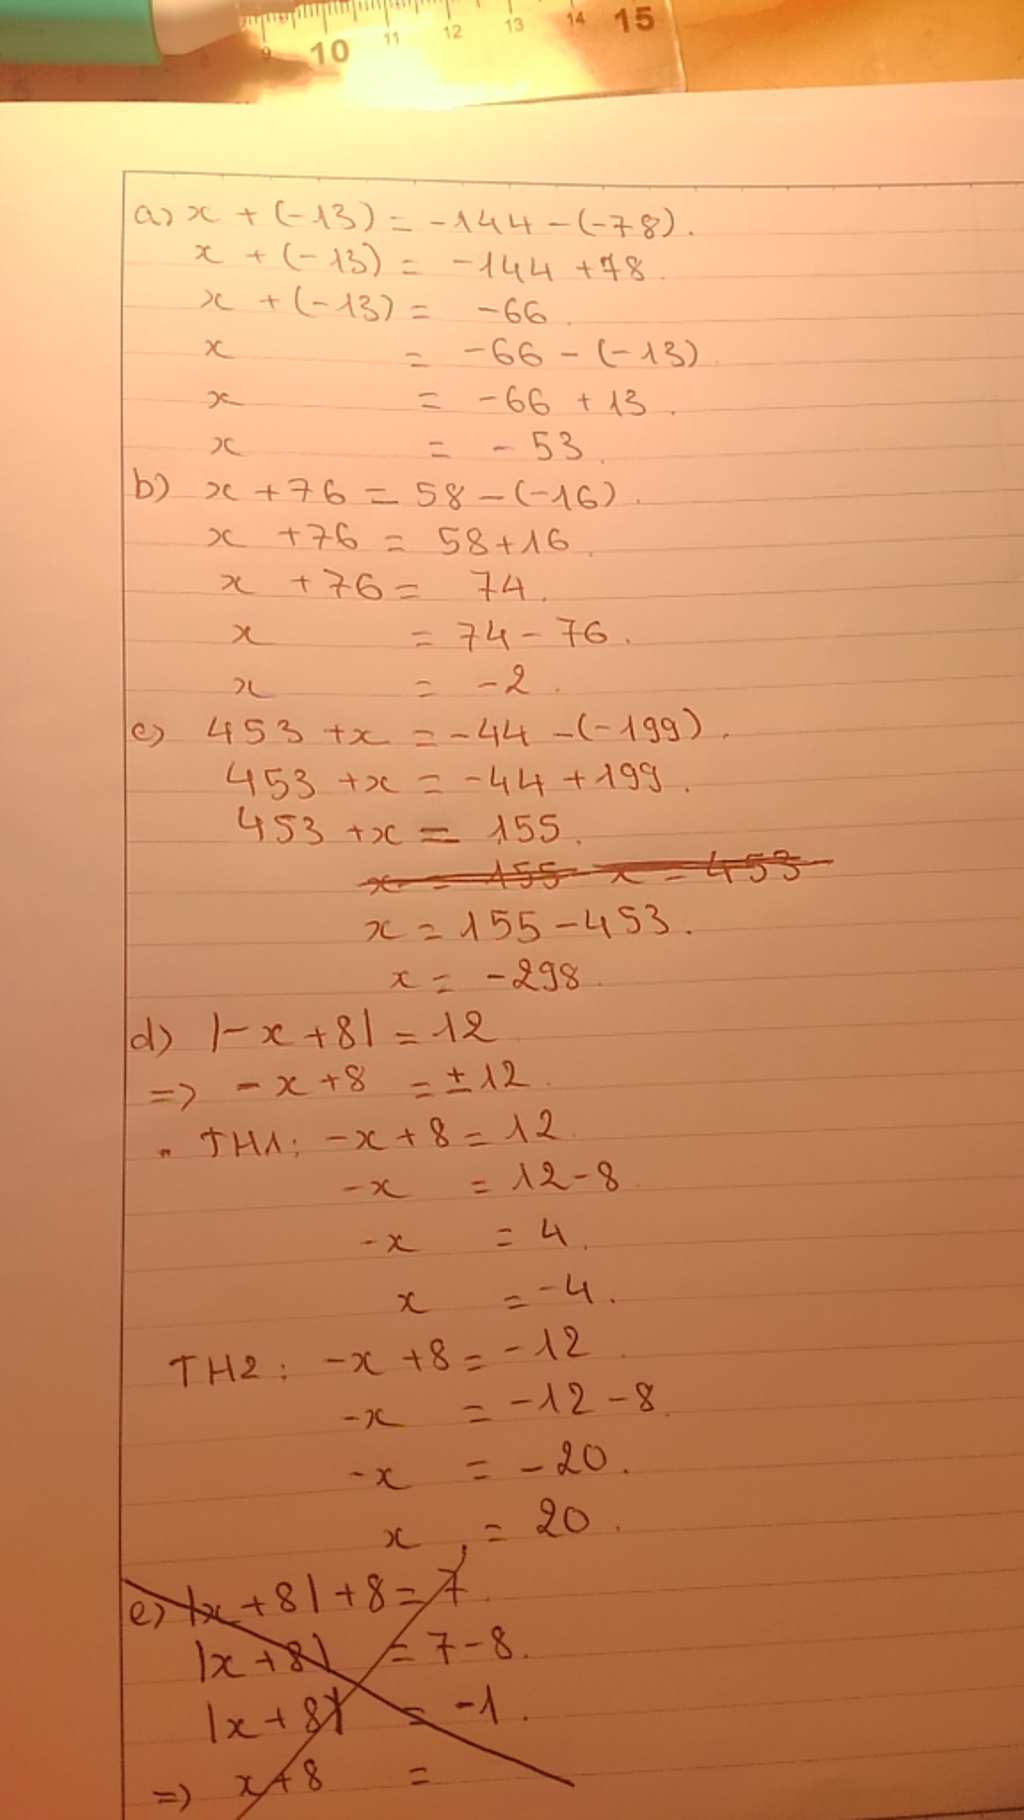 9 10 11 12 13 14 15
a) x + (-13) = -144 - (-78).
x + (-13) = -144 + 78.
x + (-13) = -66.
x = -66 - (-13)
x = -66 + 13.
x = -53.
b) x + 76 = 58 - (-16).
x + 76 = 58 + 16.
x + 76 = 74.
x = 74 - 76.
x = -2.
c) 453 + x = -44 - (-199).
453 + x = -44 + 199.
453 + x = 155.
x = 155 x = 453
x = 155 - 453.
x = -298.
d) |-x + 8| = 12
=> -x + 8 = ±12.
. TH1: -x + 8 = 12.
-x = 12 - 8
-x = 4.
x = -4.
TH2: -x + 8 = -12.
-x = -12 - 8.
-x = -20.
x = 20.
e) |x + 8| + 8 = 7.
|x + 8| = 7 - 8.
|x + 8| = -1.
=> x + 8 =